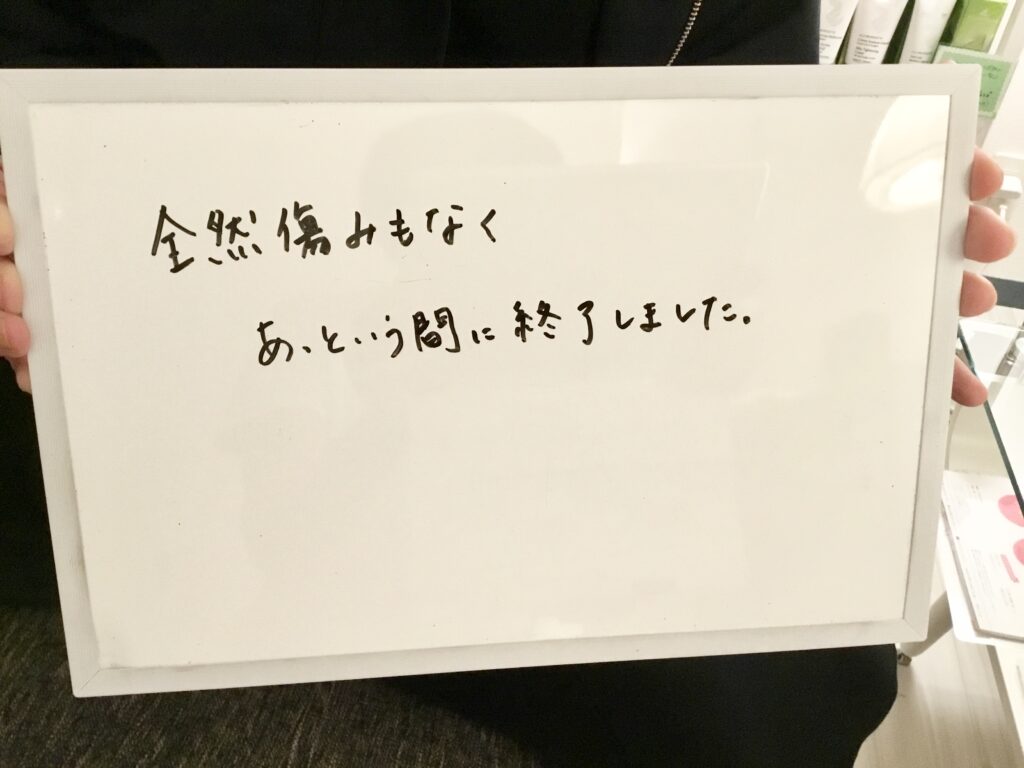 全然傷みもなく
あっという間に終了しました。